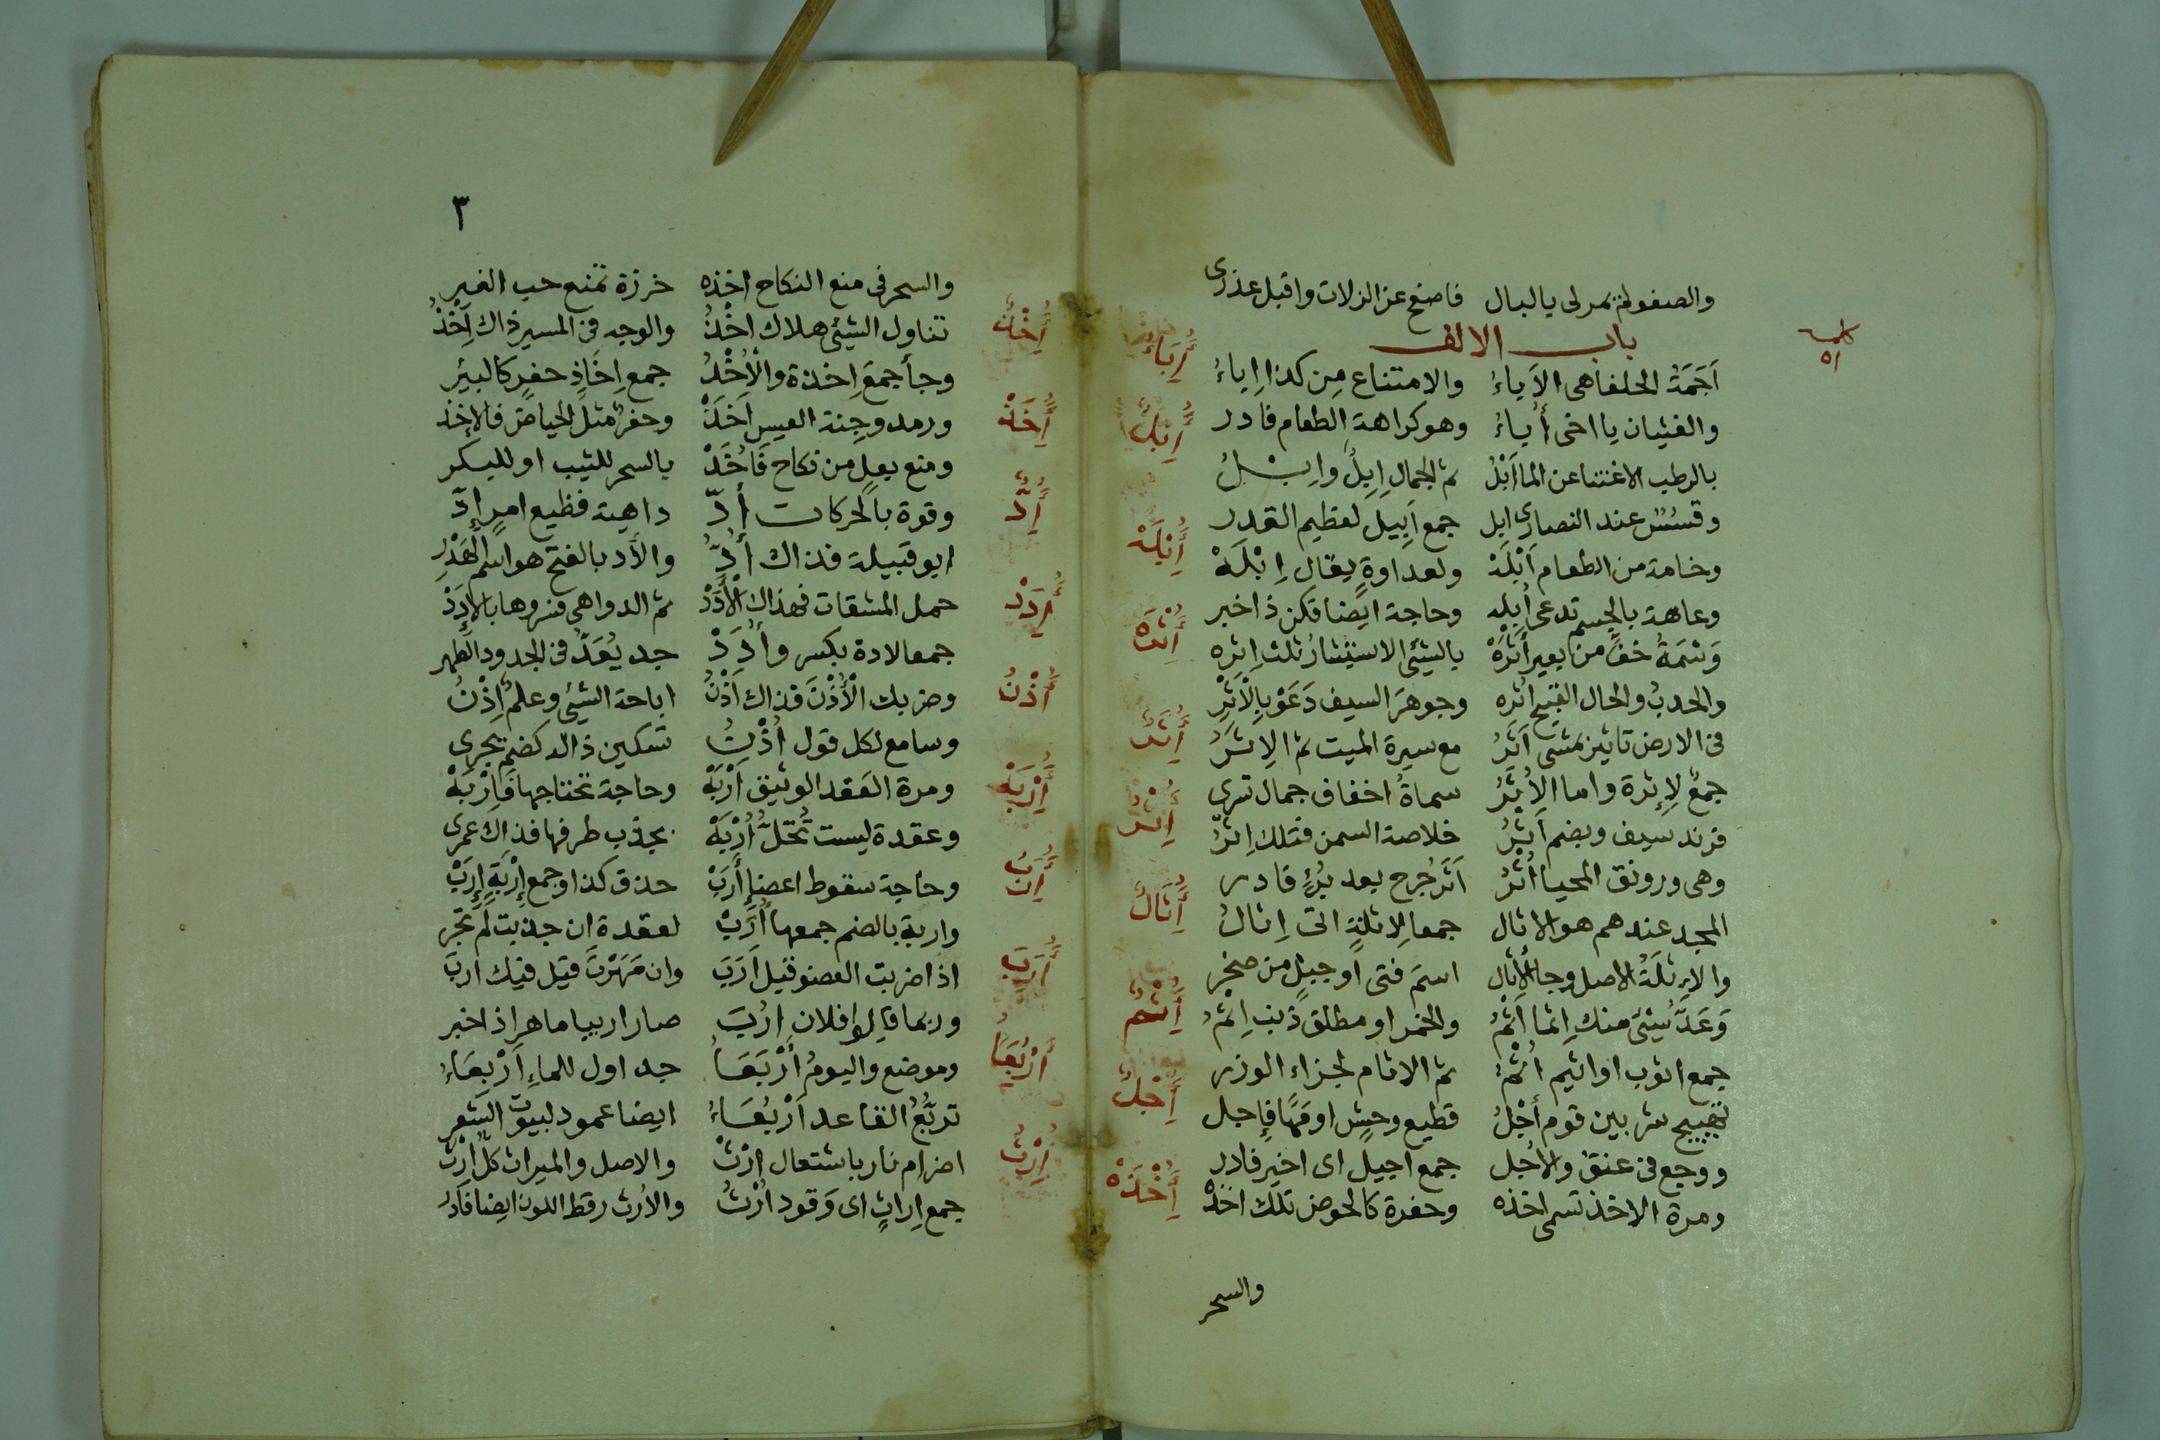 والصفو لم يمر لى يا لبال فاصفح عن الزلات واقبل عذرى
باب الالف
كلمة
٥١
أَجَمَةُ الحلفا هى الاَباءُ والامتناع مِن كذا اِباءُ
أُِبَاءُ
والغثيان يا اخى أُباءُ وهو كراهة الطعام فادر
بالرطب الاغتنا عن الما اَبْلُ ثم الجمال اِبِلٌ واِبْلُ
أُِبْلُ
وقسُسٌ عند النصارى ابل جمع اَبِيل لعظيم القدر
وخامة من الطعام اَبْلَة ولعداوةٍ يقال اِبْلَهْ
أُِبْلَهْ
وعاهة بالجسم تدعى اُبله وحاجة ايضا فكن ذا خبر
وَسْمَةُ خف من بعير أَثْرَهْ بالشيئ الاستيثار تلك اِثره
أُِثْرَه
والجدبُ والحال القبيح اثره وجوهرَ السيف دَعَوْ بِالْأَثْرِ
فى الارض تاثير بمشى اَثَرُ مع سيرة الميت ثم الاِثَرُ
أُِثَرُ
جمعٌ لِاِثرة واما الاُثَرُ سماةُ اخفاف جمال تسرى
فرند سيف وبضم اَثْرُ خلاصة السمن فتلك اِثْرُ
أُِثْرُ
وهى ورونق المحيا اُثْرُ اَثَر جُرح بعد بُرْءٍ فادر
المجد عندهم هو الاثال جمعا لاِثلةٍ اتى اِثالُ
أُِثَالُ
والاِثلَةُ الاصل وجا الاُثال اسمَ فتى او جبلٍ من صخر
وَعَدُّ شيئ منك اِثما اَثْمُ والخمر او مطلق ذنب اِثْمُ
أُِثْمُ
جمع اثوب او اثيم اُثْمُ ثم الاثام لجزاء الوزر
تهييج شر بين قوم أَجْلُ قطيع وحشٍ او مَهًا فاِجل
أُِجْلُ
ووجع فى عنق والاُجل جمع اجيل اى اخير فادر
ومرة الاخذ تسمى اخذه وحفرة كالحوض تلك اخذهْ
أُِخْذَهْ
والسحر
٣
والسحر فى منع النكاح اخذه خرزة تمنع حب الغير
تناول الشيئ هلاك اَخْذُ والوجه فى المسير ذاك اِخْذُ
أُِخْذُ
وجأ جمعَ اِخذة والاُخْذُ جمع اِخَاذٍ حفرٍ كالبئر
ورمد وجِنة العيس اَخَذْ وحفرٌ مثل الحياض فالاِخَذْ
أُِخَذْ
ومنع بعل من نكاح فَاُخَذْ بالسحر للثيب او للبكر
وقوة بالحركات أَدّ داهية فظيع امر اِدّ
أُِدُّ
ابو قبيلة فذاك أُدُّ والاَد بالفتح هو اسم الهَدْرِ
حمل المشقات فهذاك الْأَدَدْ ثم الدواهى فسروها بالاِدَدْ
أُِدَدْ
جمعا لادة بكسر وأُدَدْ جد يُعَدّ فى الجدود الطهر
وضربك الْأُذْنَ فذاك اَذْنُ اباحة الشيئ وعلمٌ اِذْنُ
أُِذْنُ
وسامع لكل قول اُذْنُ تسكين ذا لد كضم يجرى
ومرة العَقد الوثيق اَرْبَهْ وحاجة تحتاجها فَاِرْبَهْ
أُِرْبَهْ
وعقدة ليست تُحَلُّ اُرْبَهْ بجذب طرفها فذاك عمرى
وحاجة سقوط اعضإ أَرَبْ حذق كذا وجمع اِرْبَةٍ اِرَبْ
أُِرَبُ
واربة بالضم جمعها اُرَبْ لعقدة ان جذبت لم تجر
اذا ضربت العضو قيل اَرَبَ وان مَهَرْتَ قيل فيك ارِبَ
أُِرَبَ
وربما قالوا فلان ارُبَ صار اربيا ماهرا ذا خبر
وموضع واليومُ أَرْبَعَاءُ جداول للماءِ اَرْبِعَاءُ
أَرْبُِعَاءُ
تربُّعُ القاعد اَرْبُعَاءُ ايضا عمود لبيوت الشعر
اضرام نار باشتعال ارْثُ والاصل والميراث كلٌّ اِرْثُ
أُِرْثُ
جمع اِراثٍ اى وَقود اُرْثُ والاُرث رقط اللون ايضا فادر